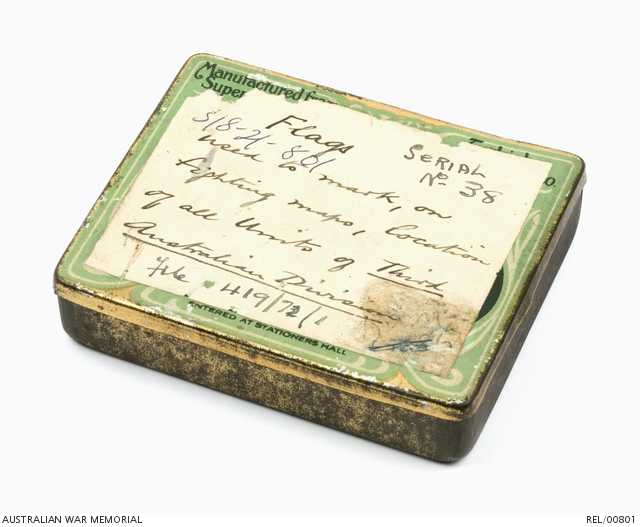 Manufactured fr
Super
Flags
S18-21-801
used to mark, on
fighting maps, location
of all Units of Third
Australian Division
SERIAL
No. 38
File 419/72/1
ENTERED AT STATIONERS HALL
AUSTRALIAN WAR MEMORIAL
REL/00801